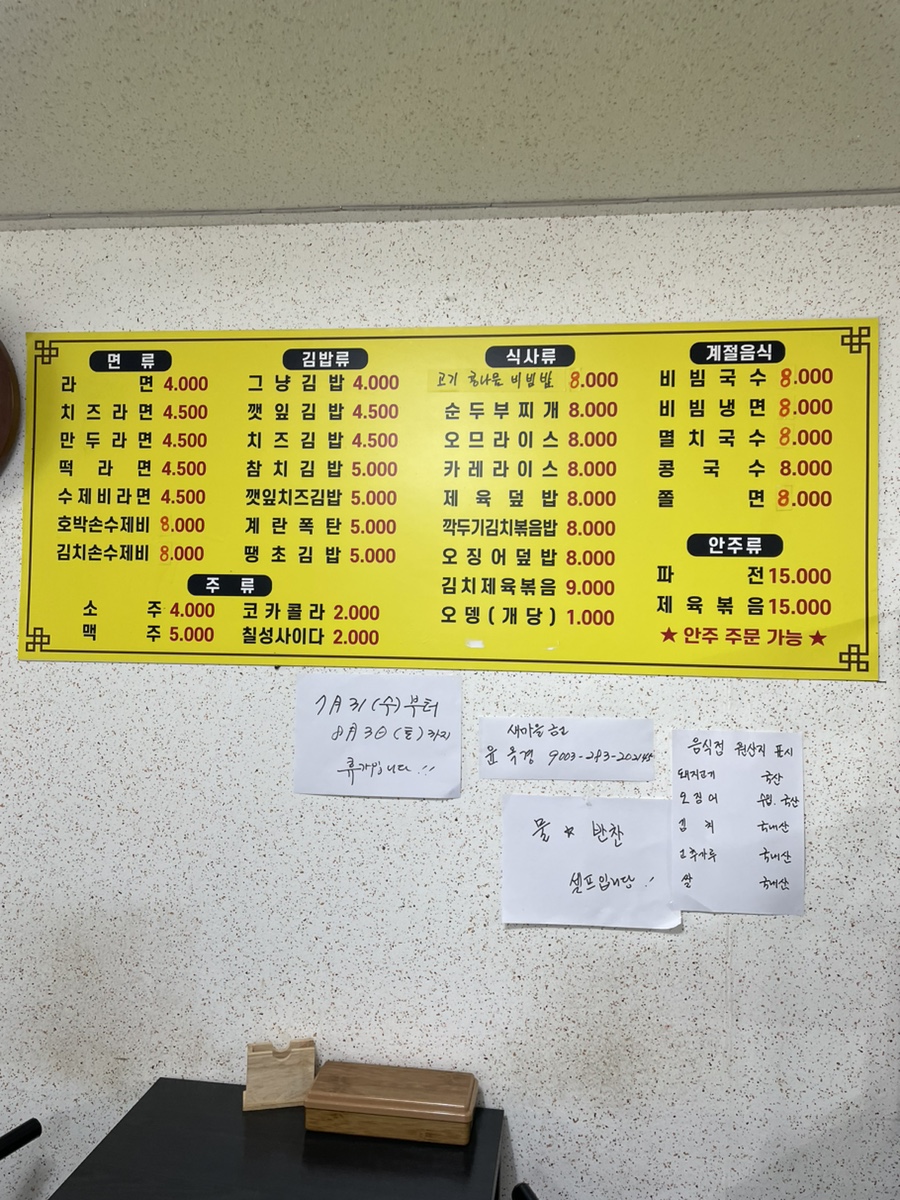 면 류
라 면 4.000
치즈라면 4.500
만두라면 4.500
떡 라 면 4.500
수제비라면 4.500
호박손수제비 8.000
김치손수제비 8.000
김밥류
그냥김밥 4.000
깻잎김밥 4.500
치즈김밥 4.500
참치김밥 5.000
깻잎치즈김밥 5.000
계란폭탄 5.000
땡초김밥 5.000
주 류
소 주 4.000
맥 주 5.000
코카콜라 2.000
칠성사이다 2.000
식사류
고기 콩나물 비빔밥 8.000
순두부찌개 8.000
오므라이스 8.000
카레라이스 8.000
제육덮밥 8.000
깍두기김치볶음밥 8.000
오징어덮밥 8.000
김치제육볶음 9.000
오뎅(개당) 1.000
계절음식
비빔국수 8.000
비빔냉면 8.000
멸치국수 8.000
콩 국 수 8.000
쫄 면 8.000
안주류
파 전 15.000
제육볶음 15.000
★ 안주 주문 가능 ★
7月 31 (수) 부터
8月 3日 (토) 까지
휴가입니다 !!
새마을 금고
윤 옥 경 9003-283-
물 ☆ 반찬
셀프입니다 !
음식점 원산지 표시
돼지고기 국산
오징어 수입. 국산
김 치 국내산
고추가루 국내산
쌀 국내산